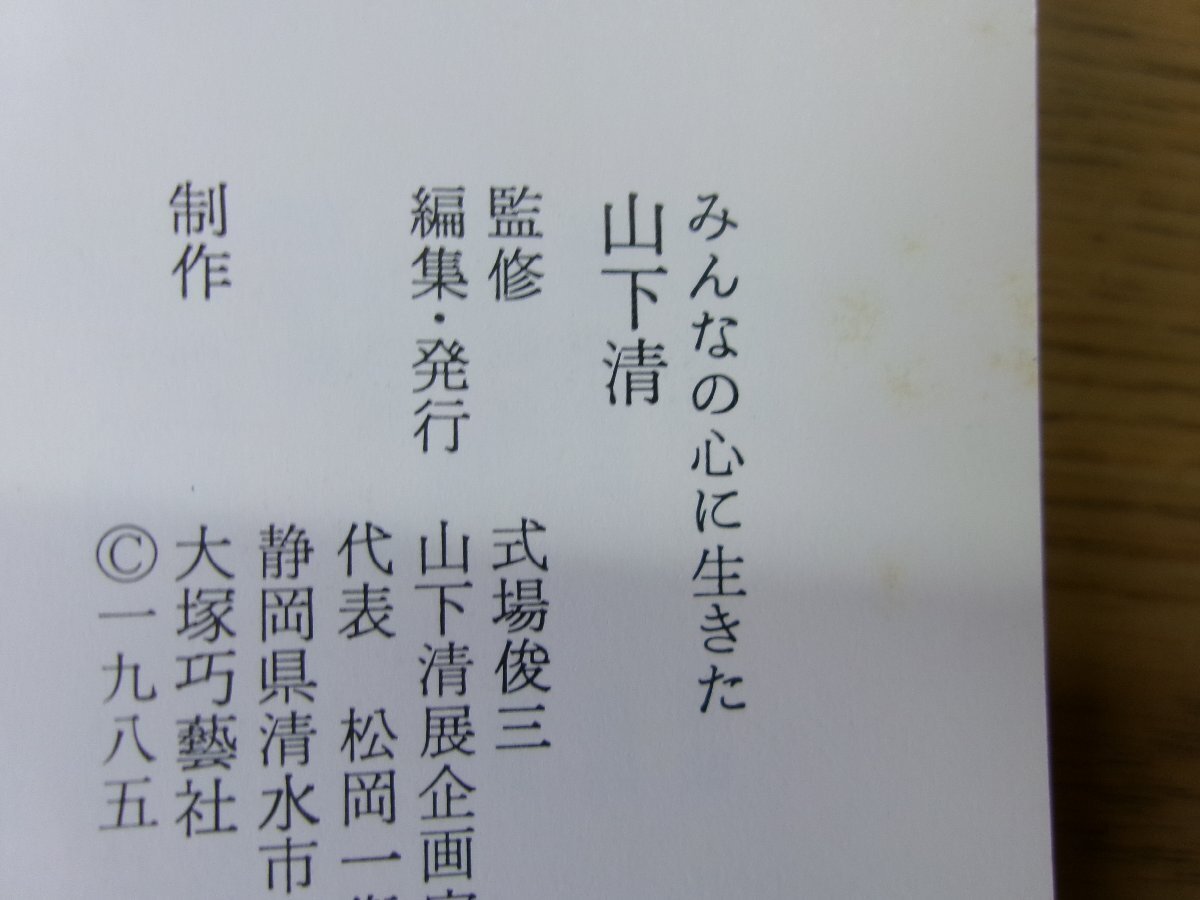 みんなの心に生きた
山下清
監修 式場俊三
編集・発行 山下清展企画室
代表 松岡一
静岡県清水市
制作 大塚巧藝社
©一九八五